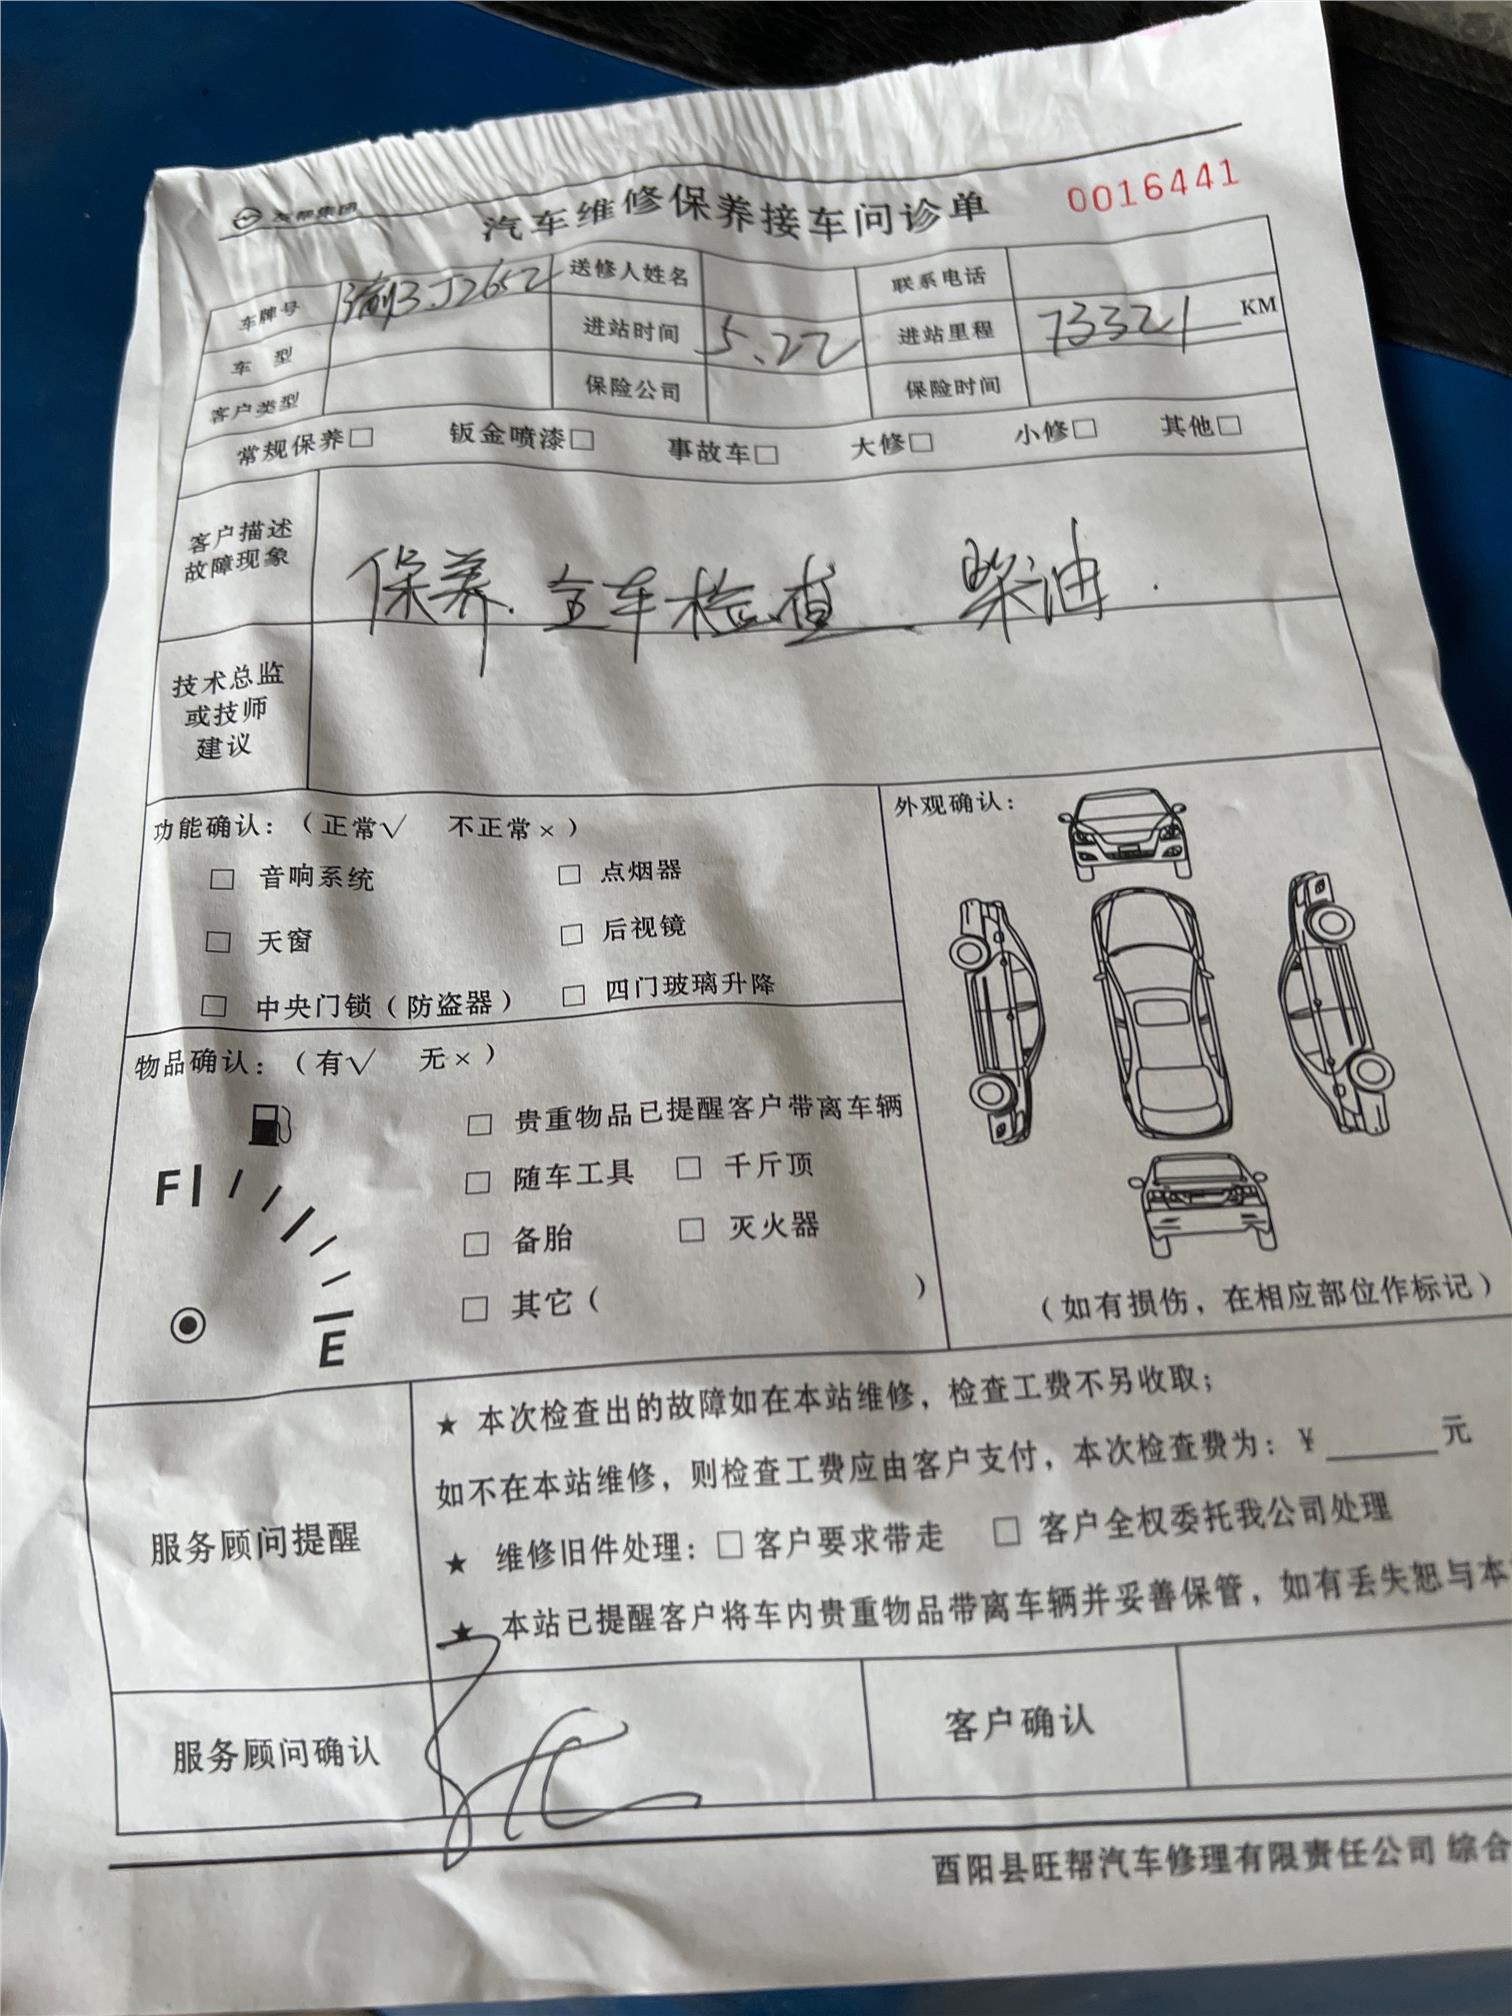 汽车维修保养接车问诊单 0016441
车牌号 渝 J2652 送修人姓名 联系电话
车 型 进站时间 5.22 进站里程 73321 KM
客户类型 保险公司 保险时间
常规保养□ 钣金喷漆□ 事故车□ 大修□ 小修□ 其他□
客户描述
故障现象
保养. 全车检查 柴油.
技术总监
或技师
建议
功能确认：（正常√ 不正常×）
□ 音响系统 □ 点烟器
□ 天窗 □ 后视镜
□ 中央门锁（防盗器） □ 四门玻璃升降
外观确认：
（如有损伤，在相应部位作标记）
物品确认：（有√ 无×）
F
E
□ 贵重物品已提醒客户带离车辆
□ 随车工具 □ 千斤顶
□ 备胎 □ 灭火器
□ 其它（ ）
服务顾问提醒
★ 本次检查出的故障如在本站维修，检查工费不另收取；
如不在本站维修，则检查工费应由客户支付，本次检查费为：￥______元
★ 维修旧件处理：□客户要求带走 □ 客户全权委托我公司处理
★ 本站已提醒客户将车内贵重物品带离车辆并妥善保管，如有丢失恕与本
服务顾问确认 客户确认
酉阳县旺帮汽车修理有限责任公司 综合